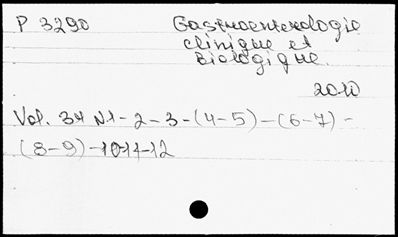 P 3290 Gastroenterologie
clinique et
Biologique.
2010
Vol. 34 N1-2-3-(4-5)-(6-7)-
(8-9)-10-11-12